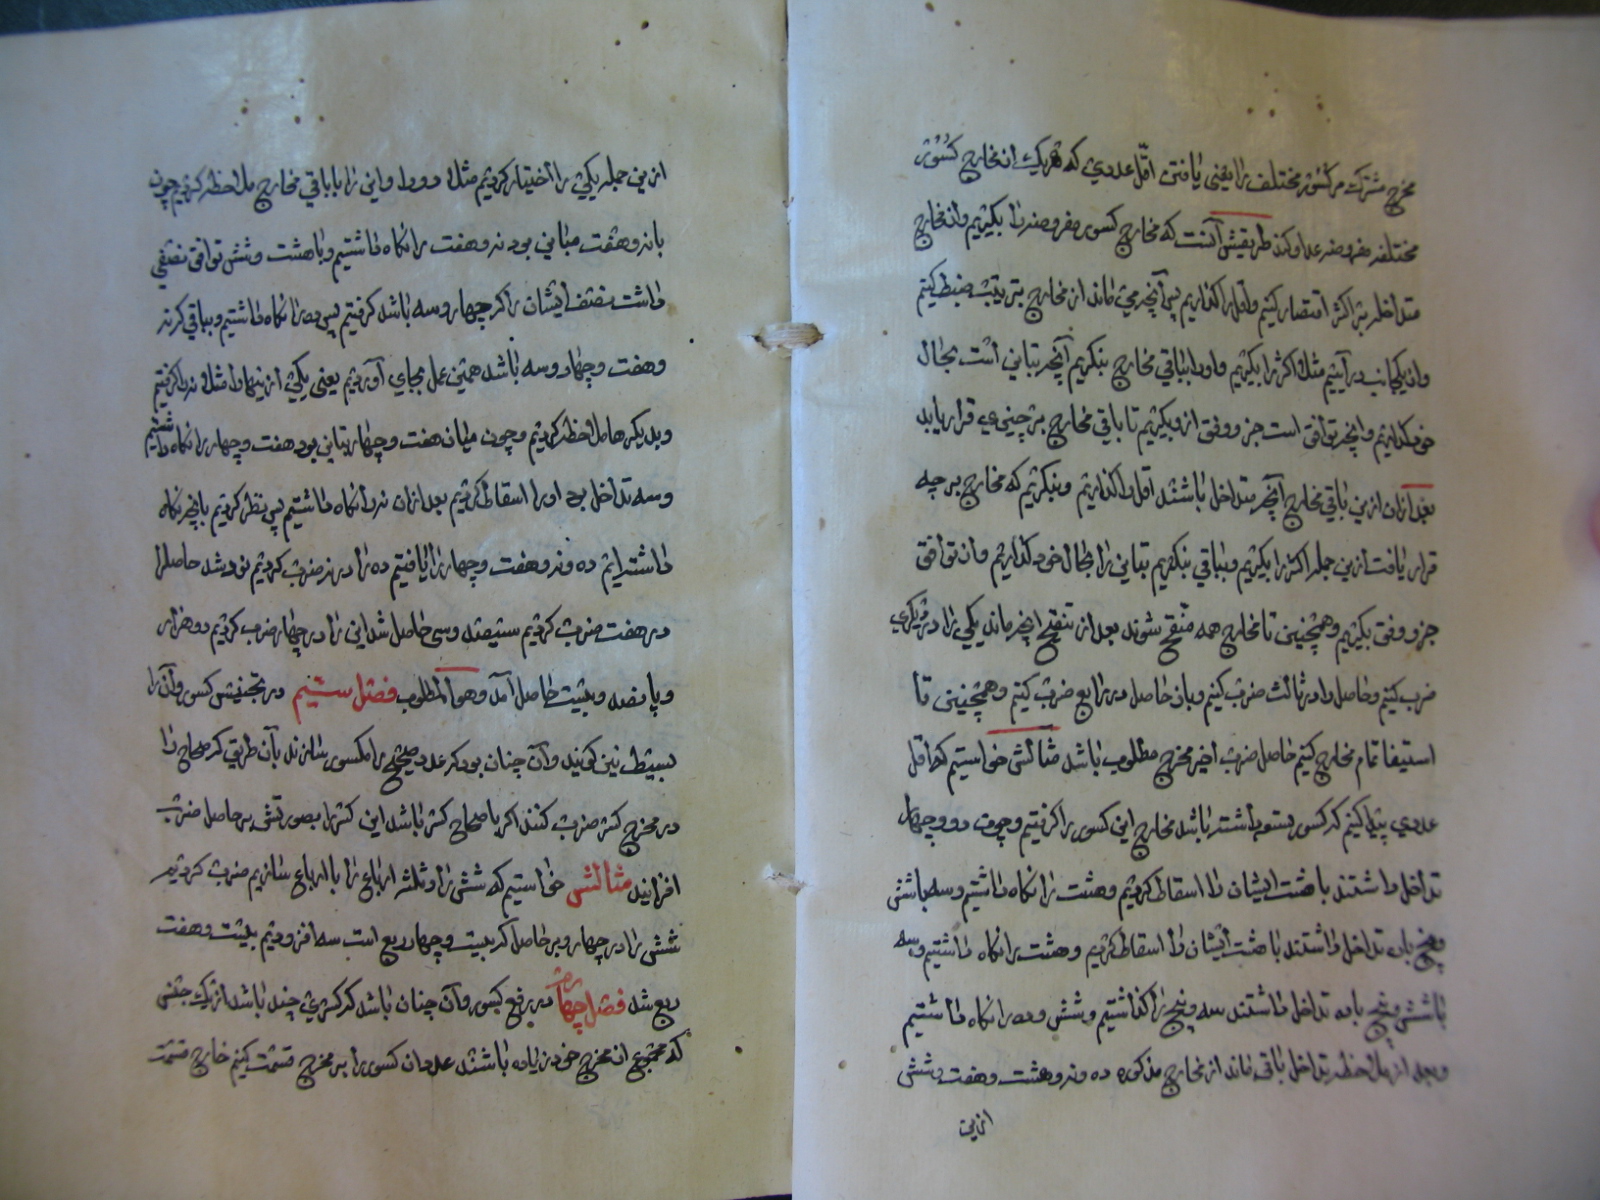 مخرج مشترک مر کسور مختلف را یعنی یافتن اقل عددی که هریک از مخارج کسور
مختلفه مفروضه عد او کند طریقش آنست که مخارج کسور مفروضه را بکیریم و از مخارج
متداخله بر اکثر اقتصار کنیم و اقل را کذاریم پس آنچه می ماند از مخارج بترتیب ضبط کنیم
و از یکجانب در آییم مثلا اکثر را بکیریم و او را بباقی مخارج بنکریم آنچه تباین است بحال
خود کذاریم و آنچه توافق است جزو وفق ازو بکیریم تا باقی مخارج بر چیزی قرار یابد
بعد ازان ازین باقی مخارج آنچه متداخل باشند اقل را کذاریم و بنکریم که مخارج بر چه
قرار یافت ازین جمله اکثر را بکیریم و بباقی بنکریم تباین را بحال خود کذاریم و از توافق
جزو وفق بکیریم و همچنین تا مخارج همه منقح شوند بعد از تنقیح آنچه ماند یکی را در دیکری
ضرب کنیم و حاصل را در ثالث ضرب کنیم و باز حاصل در رابع ضرب کنیم و همچنین تا
استیفا تمام مخارج کنیم حاصل ضرب اخیر مخرج مطلوب باشد مثالش خواستیم که اقل
عددی پیدا کنیم که کسور تسعه داشته باشد مخارج این کسور را کرفتیم و چون دو و چهار
تداخل داشتند با هشت ایشان را اسقاط کردیم و هشت را نکاه داشتیم و سه باشش
و پنج باده تداخل داشتند با هشت ایشان را اسقاط کردیم و هشت را نکاه داشتیم و سه
باشش و پنج باده تداخل داشتند سه و پنج را کذاشتیم و شش و ده را نکاه داشتیم
و بعد از ملاحظه تداخل باقی ماند از مخارج مذکوره ده و نه و هشت و هفت و شش
ازین
ازین جمله یکی را اختیار کردیم مثلا ده را و این را با باقی مخارج ملاحظه کردیم چون
با نه و هفت مباین بود نه و هفت را نکاه داشتیم و با هشت و شش توافق نصفی
داشت نصف ایشان را که چهار و سه باشد کرفتیم پس ده را نکاه داشتیم و بباقی که نه
و هفت و چهار و سه باشد همین عمل بجای آوردیم یعنی یکی ازینها را مثلا نه را کرفتیم
و بدیکرها ملاحظه کردیم و چون میان هفت و چهار تباین بود هفت و چهار را نکاه داشتیم
و سه تداخل بود او را اسقاط کردیم بعد ازان نه را نکاه داشتیم پس نظر کردیم بآنچه نکاه
داشته ایم ده و نه و هفت و چهار را یافتیم ده را در نه ضرب کردیم نود شد حاصل را
در هفت ضرب کردیم ششصد و سی حاصل شد این را در چهار ضرب کردیم دو هزار
و پانصد و بیست حاصل آمد وهو المطلوب فصل سیم در تجنیس کسور و آن را
بسیط نیز کویند و آن چنان بود که عدد صحیح را مکسور سازند بآن طریق که صحاح را
در مخرج کسر ضرب کنند اکر با صحاح کسر باشد این کسر را بصورتش بر حاصل ضرب
افزایند مثالش خواستیم که شش را و ثلثه ارباع را با ارباع سازیم ضرب کردیم
شش را در چهار و بر حاصل که بیست و چهار ربع است سه افزودیم بیست و هفت
ربع شد فصل چهارم در رفع کسور و آن چنان باشد که کسری چند باشد از یک جنس
که مجموع از مخرج خود زیاده باشند عدد آن کسور را بر مخرج قسمت کنیم خارج قسمت